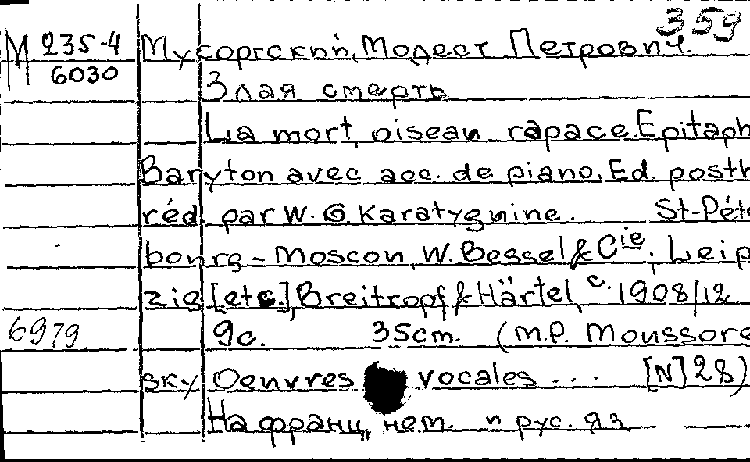 359
М 235-4 Мусоргский, Модест Петрович.
6030
Злая смерть
La mort, oiseau rapace. Epitaph
Baryton avec acc. de piano. Ed. posth
réd. par W. G. Karatyguine. St-Pét
bourg - Moscou, W. Bessel & Cie, Leip
zig [etc.], Breitkopf & Härtel, c. 1908/12
6979 9c. 35cm. (M.P. Moussorg
sky Oeuvres vocales ... [N] 28)
На франц., нем. и рус. яз